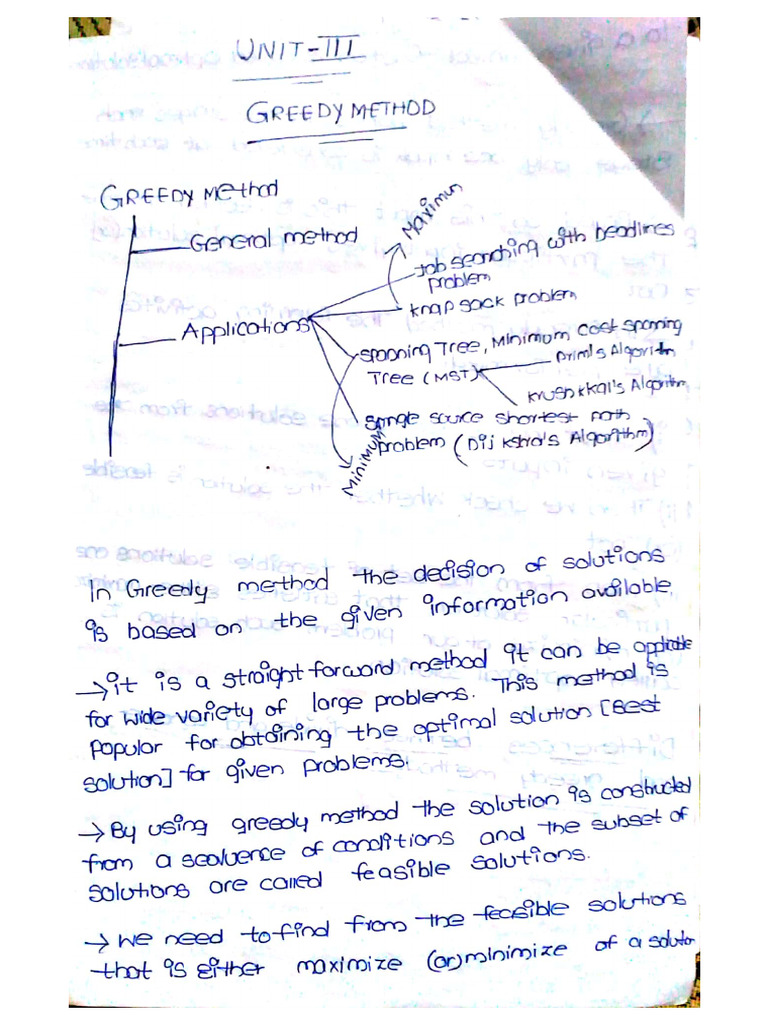 UNIT-III
GREEDY METHOD
GREEDY Method
General method
Maximun
Job searching with Deadlines
problem
Knap sack problem
Applications
Spanning Tree, Minimum cost spanning
Tree (MST)
Prim's Algorithm
Krushkkal's Algorithm
Single source shortest path
problem (Dijkstra's Algorithm)
Minimum
In Greedy method the decision of solutions
is based on the given information available
→ it is a straight forward method it can be applicable
for wide variety of large problems. This method is
Popular for obtaining the optimal solution [Best
solution] for given problems.
→ By using greedy method the solution is constructed
from a sequence of conditions and the subset of
solutions are called feasible solutions.
→ We need to find from the feasible solutions
that is either maximize (or) minimize of a solution